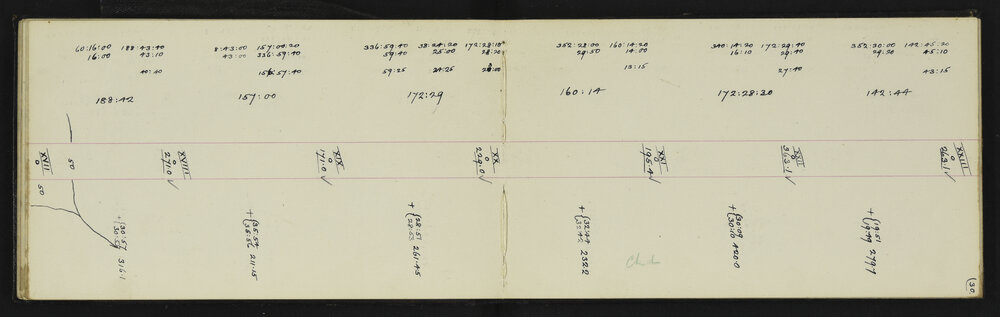 60:16:00 188:43:40 8:43:00 157:00:20 336:59:40 38:24:20 172:28:10 352:28:00 160:14:20 340:14:20 172:29:40 352:30:00 142:45:20
16:00 43:10 43:00 336:59:40 59:40 25:00 28:20 29:50 14:00 16:10 29:40 29:20 45:10
40:40 156:57:40 59:25 24:25 13:15 27:40 43:15
188:42 157:00 172:29 160:14 172:28:30 142:44
XVIII XVIII XIX XX XXI XXII XXIII
50 271.0 √ 171.0 √ 229.0 √ 195.4 √ 363.1 √ 263.1 √
50
+ {30:57 316.1
+ {35:54 211.15
35:56
+ {28:51 261.45
28:53
+ {32:44 232.2
32:42
+ {30:09 420.0
30:10
+ {19:51 279.7
19:49
Ch.d
(30.